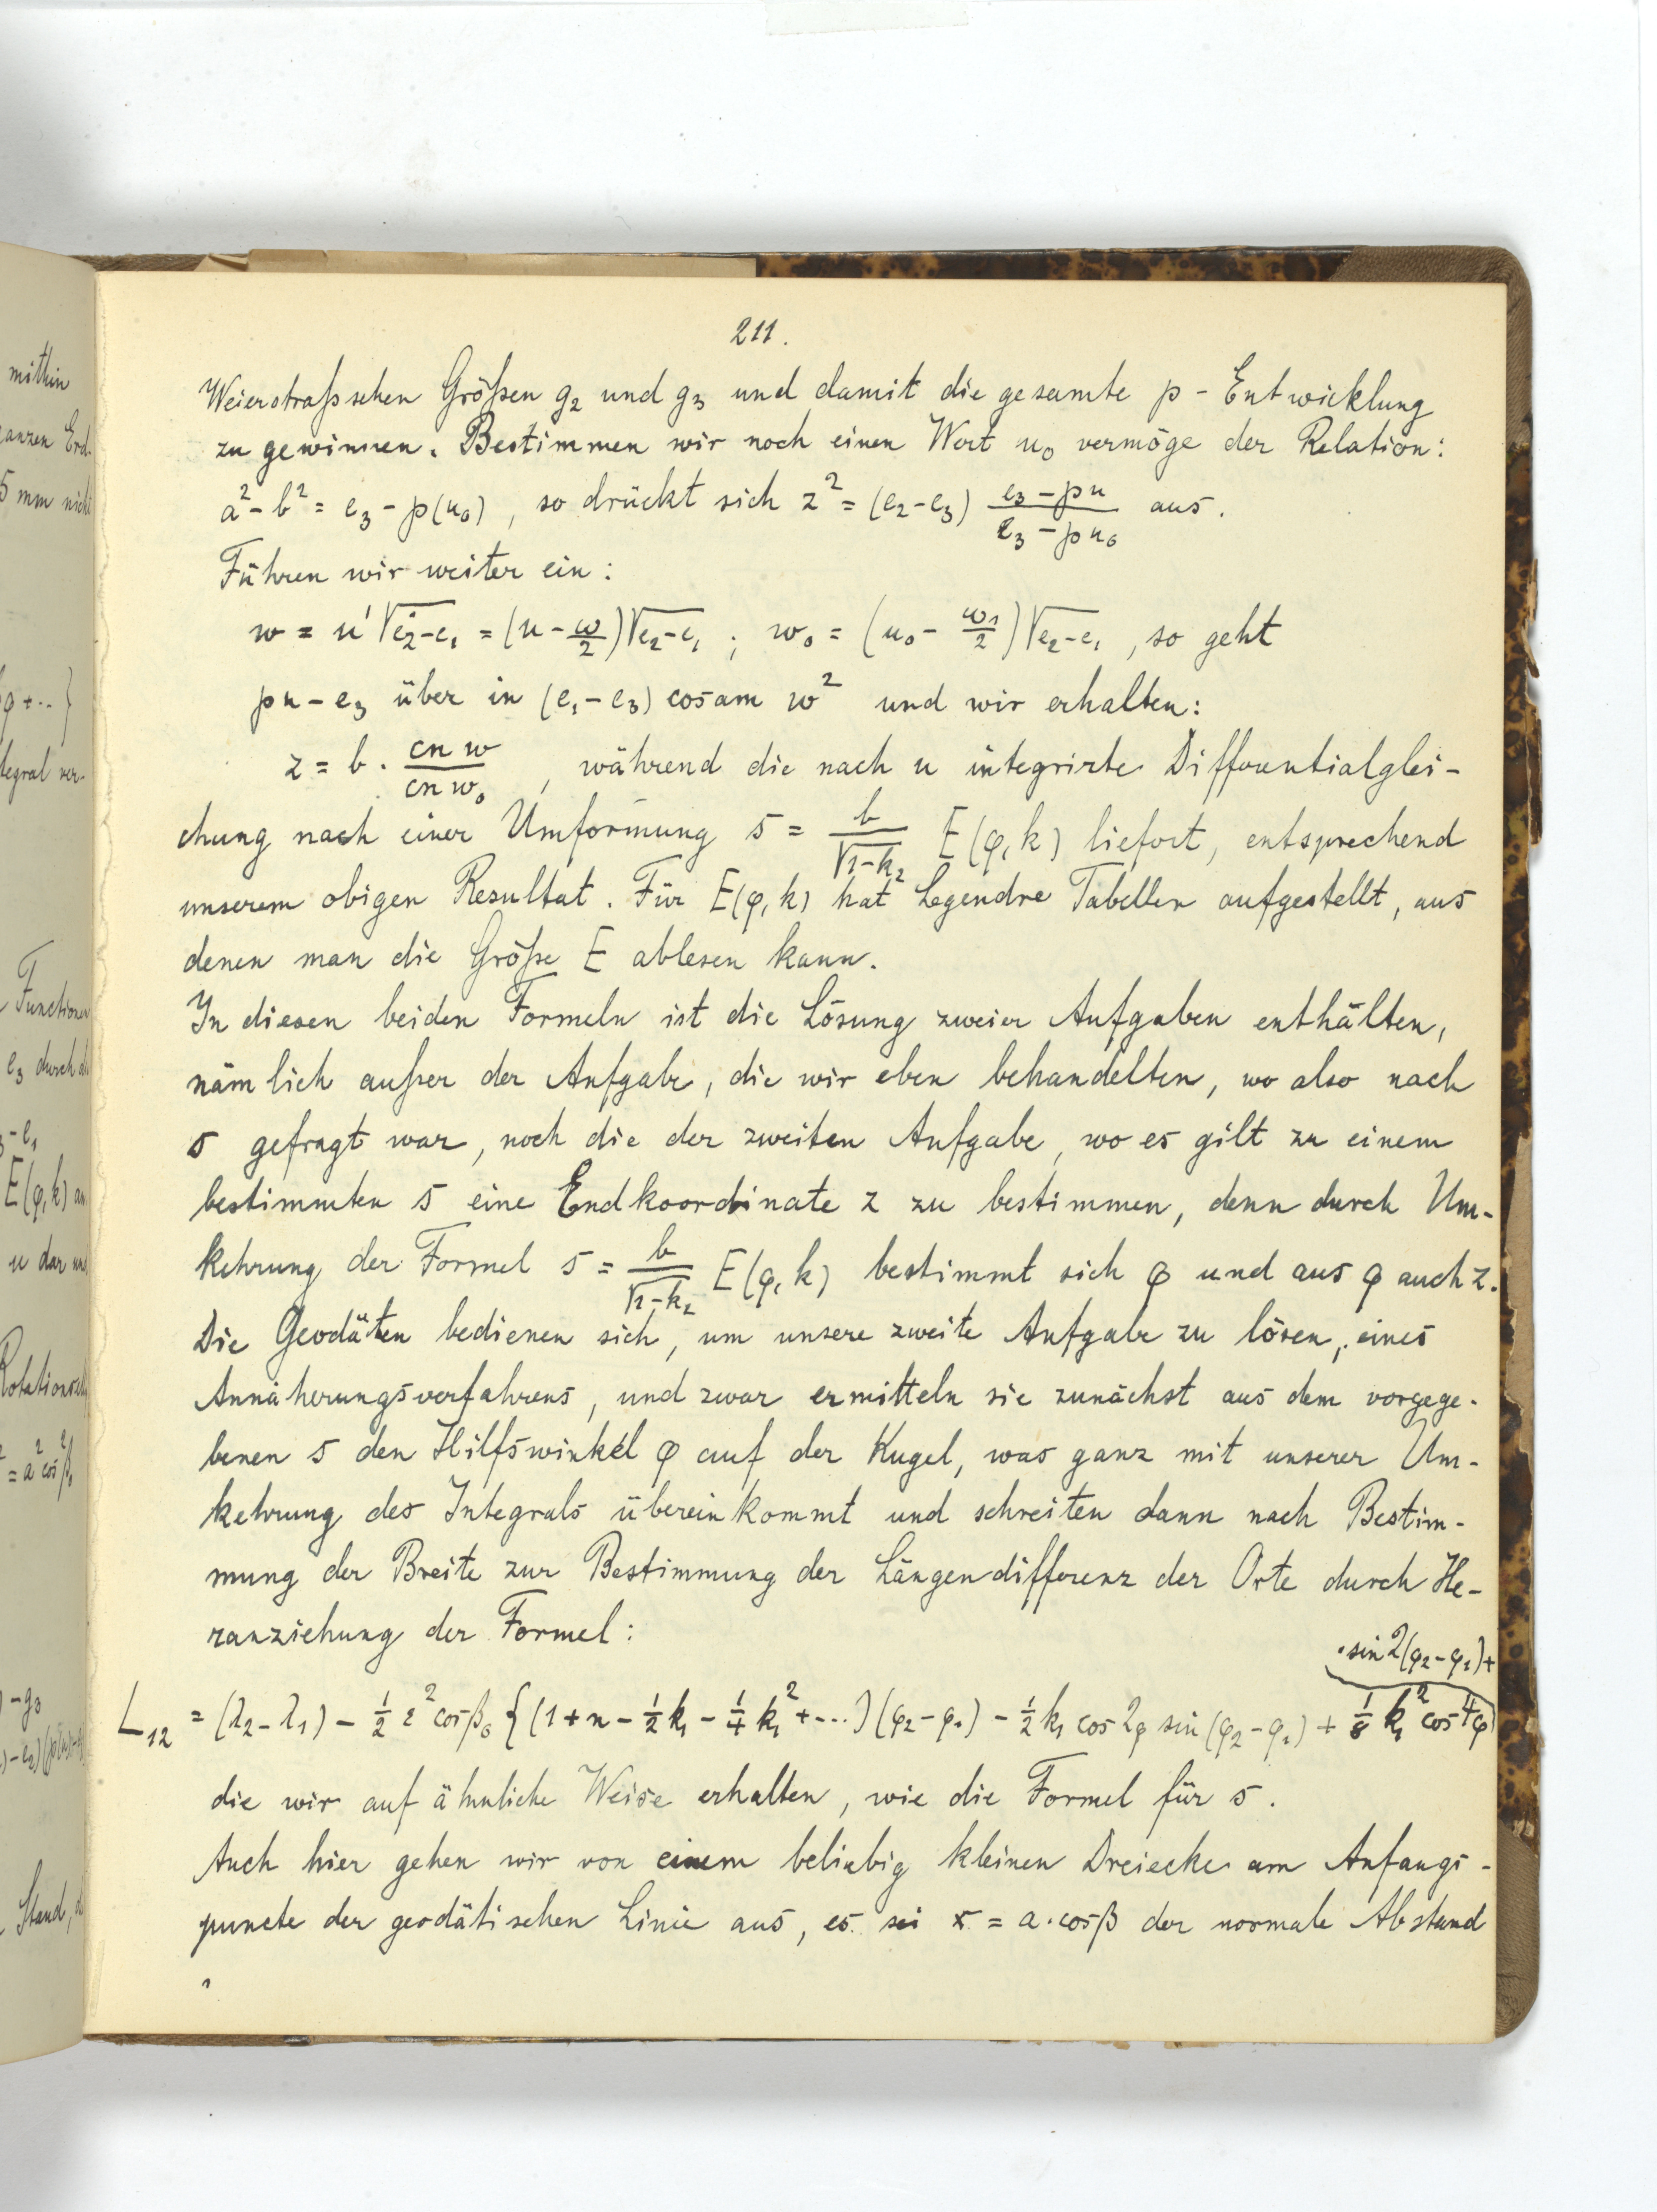 211.
Weierstraßschen Größen g₂ und g₃ und damit die gesamte p - Entwicklung
zu gewinnen. Bestimmen wir noch einen Wert u₀ vermöge der Relation:
a² - b² = e₃ - p(u₀), so drückt sich z² = (e₂-e₃) (e₃ - pu)/(e₃ - pu₀) aus.
Führen wir weiter ein:
w = u' √(e₂-e₁) = (u - ω/2)√(e₂-e₁) ; w₀ = (u₀ - ω₁/2)√(e₂-e₁), so geht
pu - e₃ über in (e₁-e₃) cosam w² und wir erhalten:
z = b · (cn w)/(cn w₀), während die nach u integrirte Differentialglei-
chung nach einer Umformung s = b/√(1-k₂) E(φ, k) liefert, entsprechend
unserem obigen Resultat. Für E(φ, k) hat Legendre Tabellen aufgestellt, aus
denen man die Größe E ablesen kann.
In diesen beiden Formeln ist die Lösung zweier Aufgaben enthälten,
nämlich außer der Aufgabe, die wir eben behandelten, wo also nach
s gefragt war, noch die der zweiten Aufgabe, wo es gilt zu einem
bestimmten s eine Endkoordinate z zu bestimmen, denn durch Um-
kehrung der Formel s = b/√(1-k₂) E(φ, k) bestimmt sich φ und aus φ auch z.
Die Geodäten bedienen sich, um unsere zweite Aufgabe zu lösen, eines
Annäherungsverfahrens, und zwar ermitteln sie zunächst aus dem vorgege-
benen s den Hilfswinkel φ auf der Kugel, was ganz mit unserer Um-
kehrung des Integrals übereinkommt und schreiten dann nach Bestim-
mung der Breite zur Bestimmung der Längendifferenz der Orte durch He-
ranziehung der Formel:
· sin 2(φ₂-φ₁) +
L₁₂ = (λ₂-λ₁) - ½ ε² cos β₀ {(1 + n - ½ k₁ - ¼ k₁² + ...) (φ₂-φ₁) - ½ k₁ cos 2φ sin (φ₂-φ₁) + ⅛ k₁² cos 4φ
die wir auf ähnliche Weise erhalten, wie die Formel für s.
Auch hier gehen wir von einem beliebig kleinen Dreiecke am Anfangs-
puncte der geodätischen Linie aus, es sei x = a · cos β der normale Abstand
mithin
ganzen Erd-
5 mm nicht
φ + ...}
tegral ver-
Functionen
e₃ durch
E(φ, k) an.
u dar und
Rotations
= a² cos² β₁
Stand,